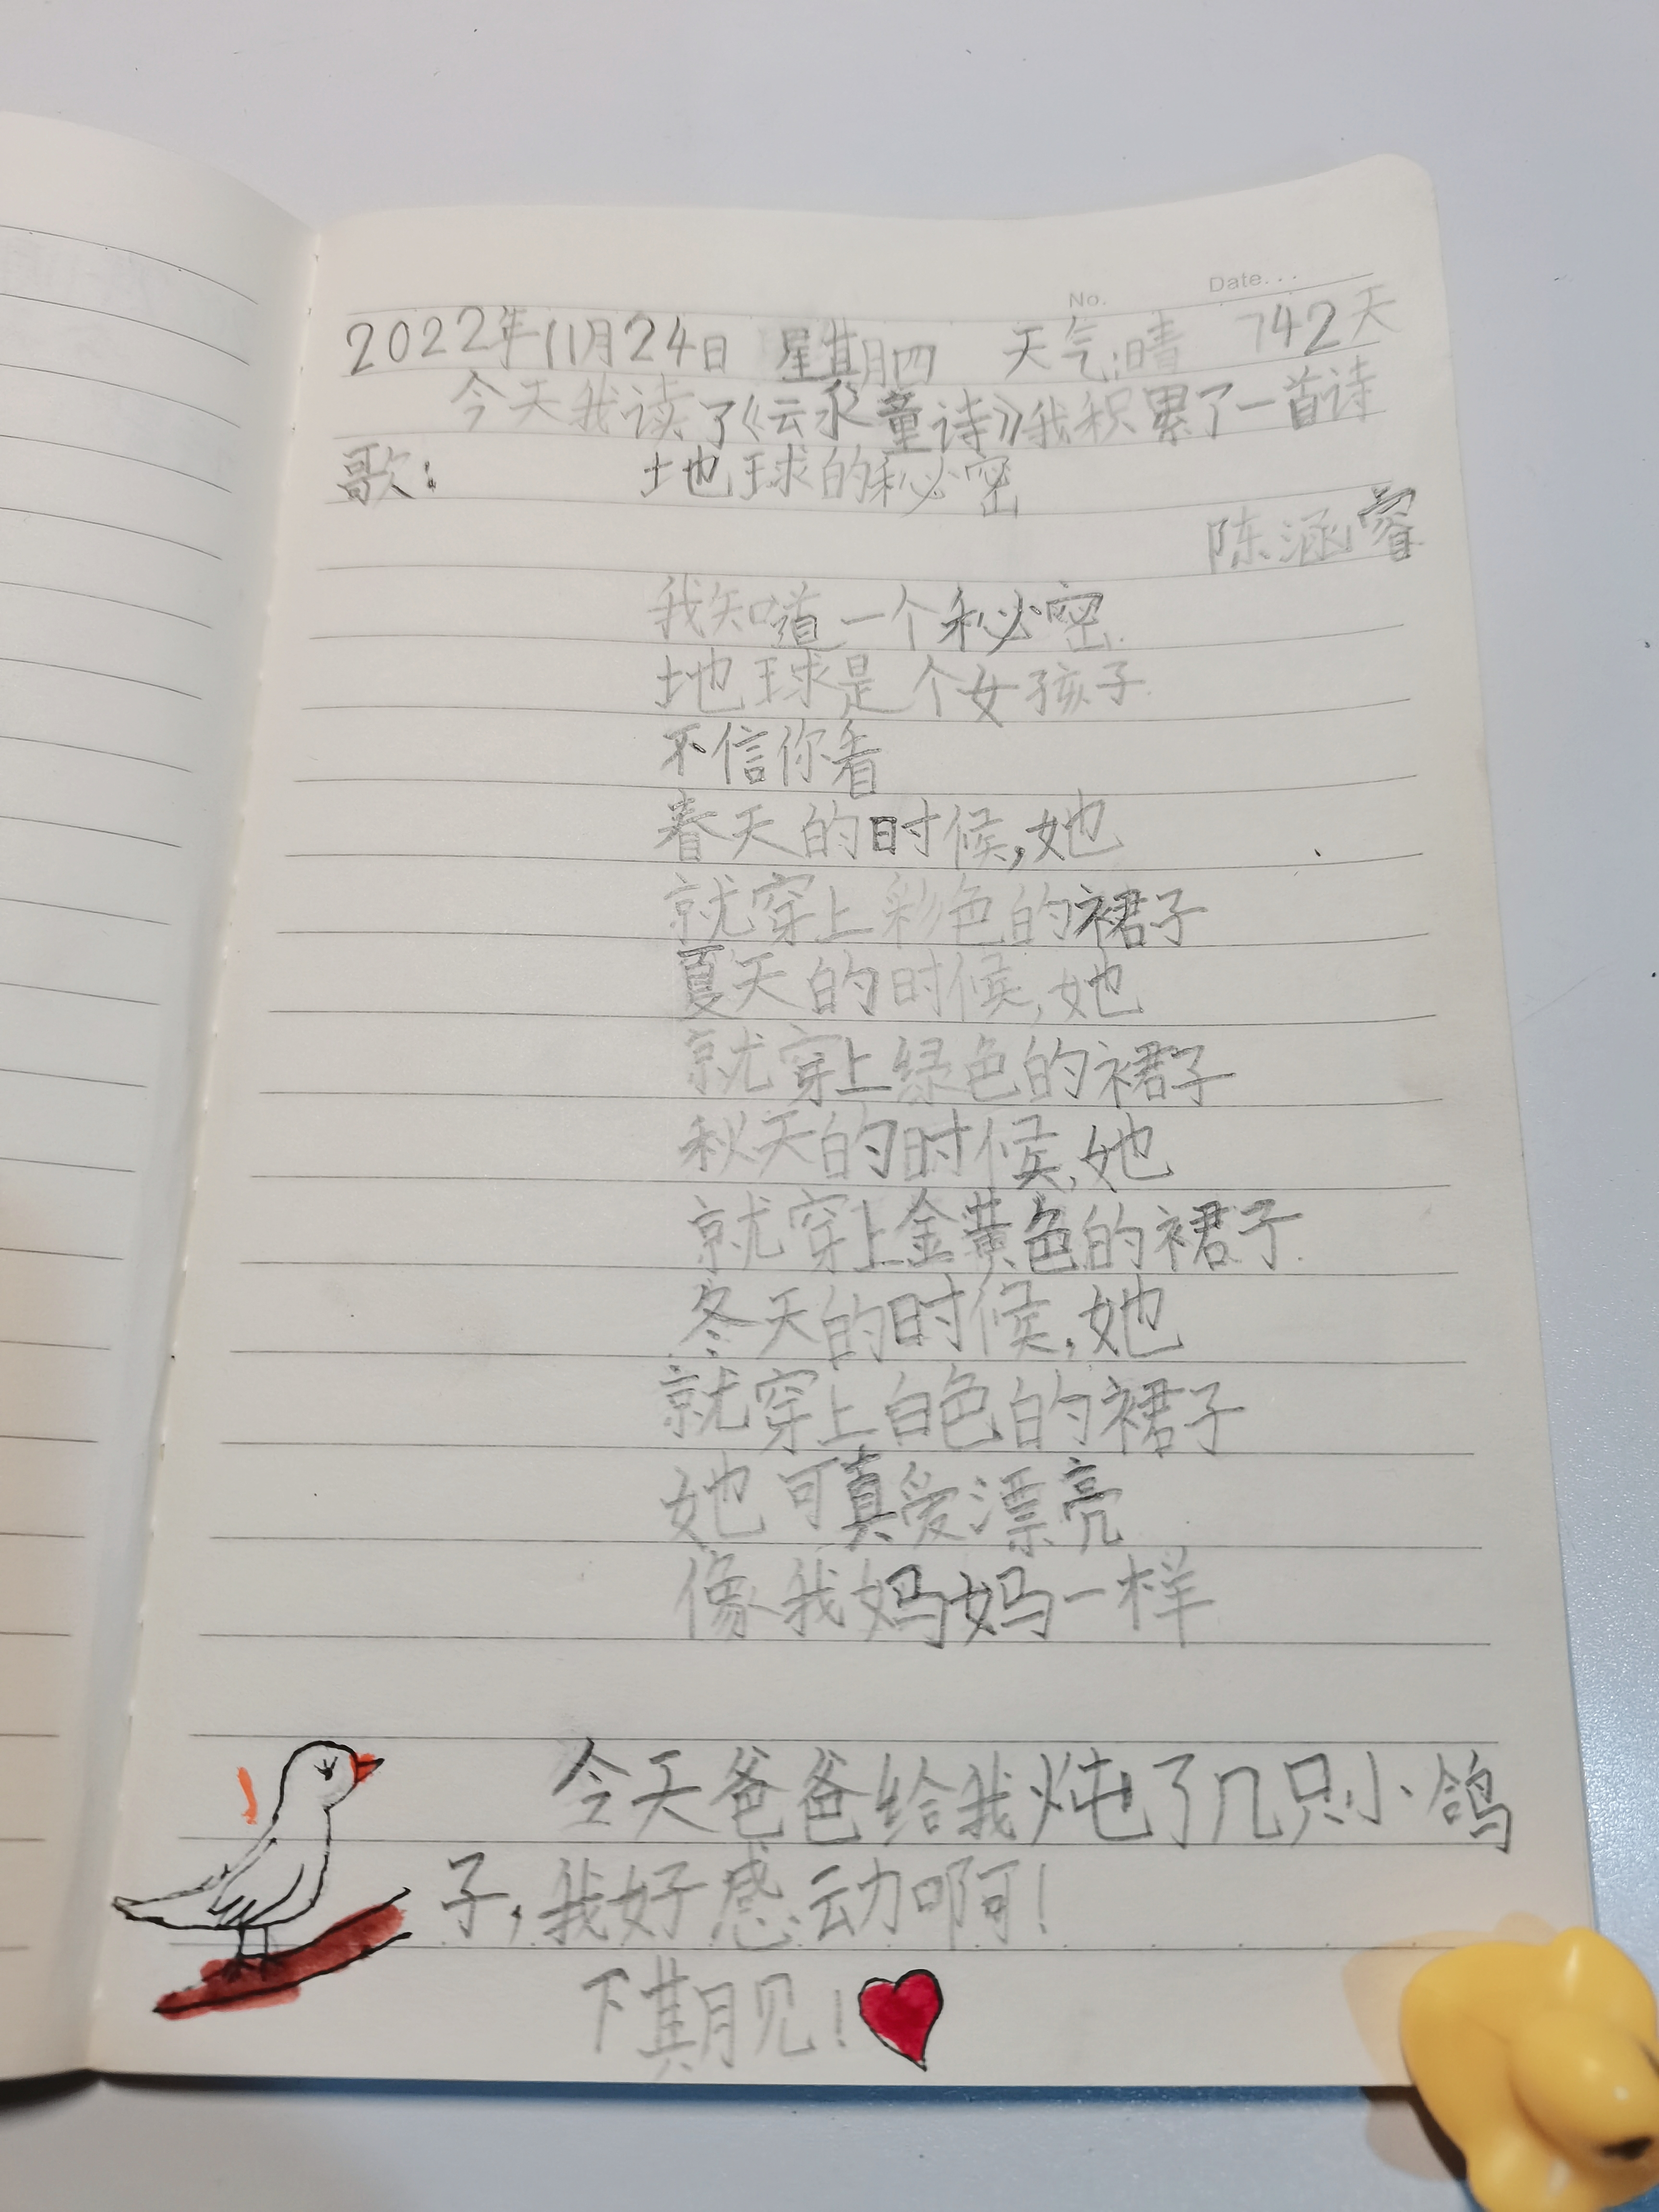 No.
Date...
2022年11月24日 星期四 天气:晴 742天
今天我读了《云泉童诗》我积累了一首诗
歌:
地球的秘密
陈涵睿
我知道一个秘密
地球是个女孩子
不信你看
春天的时候,她
就穿上彩色的裙子
夏天的时候,她
就穿上绿色的裙子
秋天的时候,她
就穿上金黄色的裙子
冬天的时候,她
就穿上白色的裙子
她可真爱漂亮
像我妈妈一样
今天爸爸给我炖了几只小鸽
子,我好感动啊!
下期见!